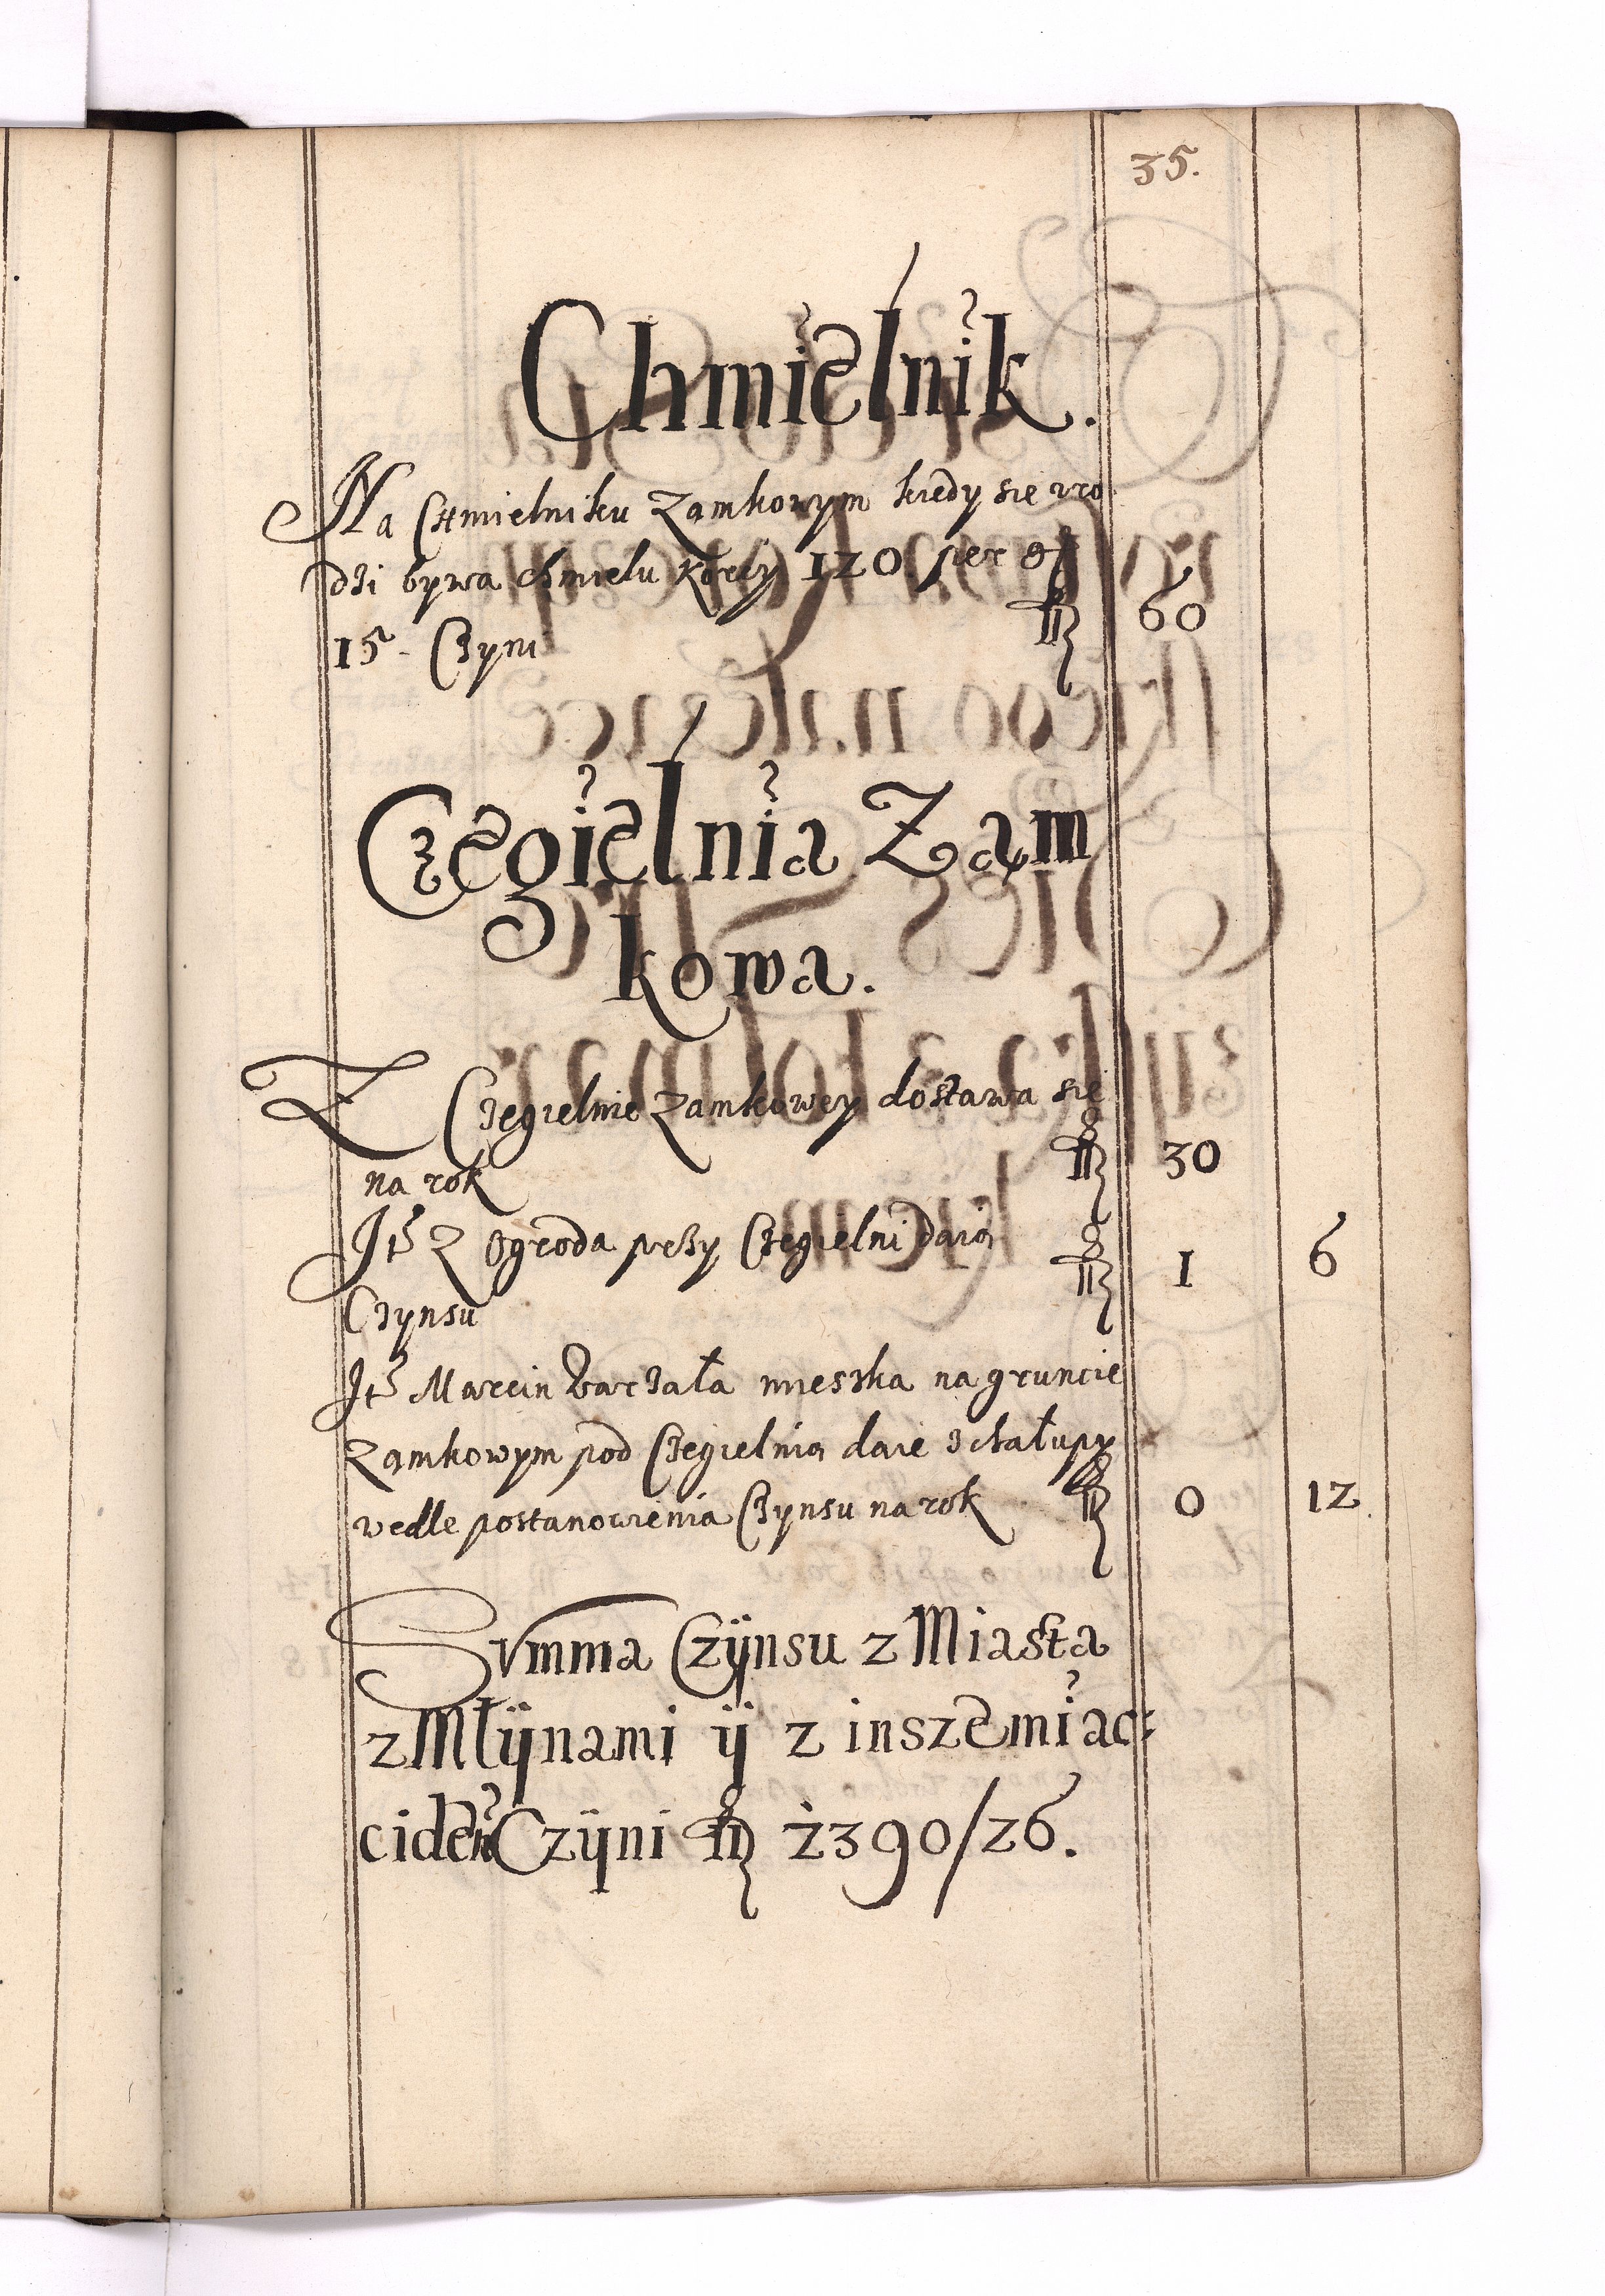 35.
Chmielnik.
Na Chmielniku Zamkowym kiedy się vro
dzi bywa chmielu korcy 120 per g
15. Czyni 60
Czegielnia Zam
kowa.
Z Czegielnie Zamkowey dostawa się
na rok 30
Itē z Ogroda przy Czegielni daią
Czynsu 1 6
Itē Marcin Barzała mieszka na gruncie
Zamkowym pod Czegielnią daie z chałupy
wedle postanowienia Czynsu na rok 0 12
Summa Czÿnsu z Miasta
z Młÿnami ÿ z inszemi ac:
ciden Czÿni 2390/26.